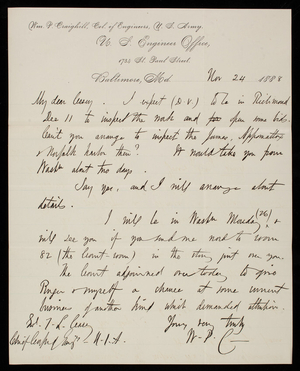 Wm. P. Craighill, Col. of Engineers, U. S. Army.
U. S. Engineer Office,
1725 St. Paul Street
Baltimore, Md. Nov 24 1888
My dear Casey. I expect (D.V.) to be in Richmond
Dec 11 to inspect the work and open some bids.
Can't you arrange to inspect the James, Appomattox
& Norfolk harbor then? It would take you from
Washn about two days.
Say yes, and I will arrange about
details.
I will be in Washn Monday (26) &
will see you if you send me word to room
82 (the Court-room) in the story just over you.
The Court adjourned over today to give
& myself a chance at some current
business of another kind which demanded attention.
Yours very truly
Gl. T. L. Casey W. P. C
Chief Corps of Engrs U.S.A